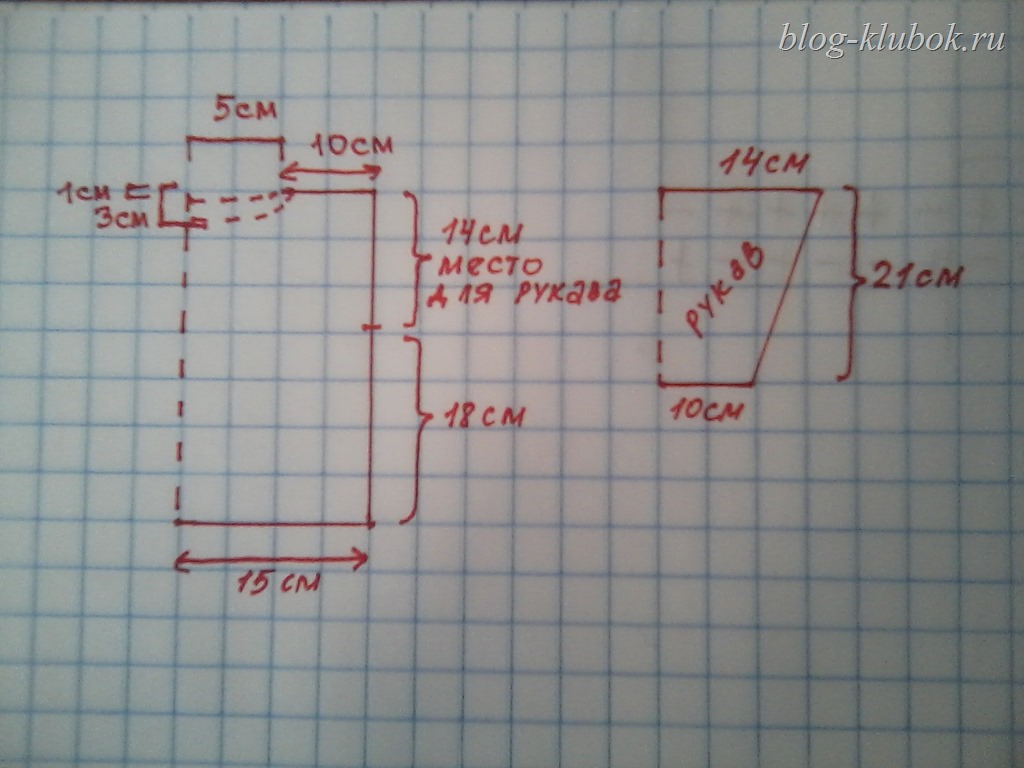 blog-klubok.ru
5см
10см
1см
3см
14см
место
для рукава
18см
15см
14см
рукав
21см
10см